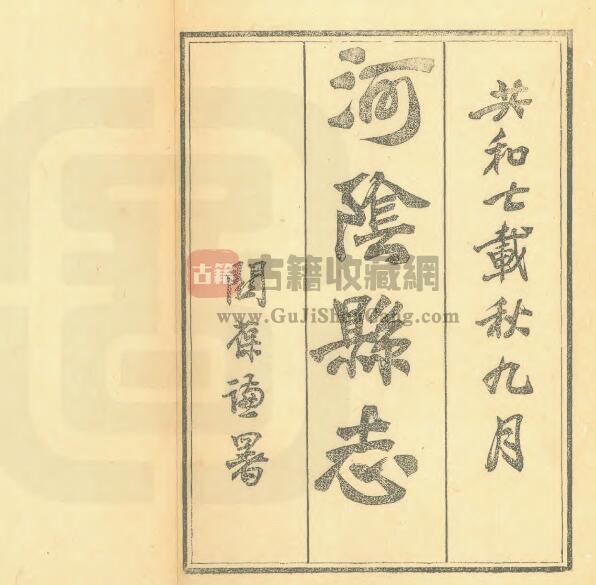 共和七載秋九月
河陰縣志
関葆謙署
古籍
古籍收藏網
www.GuJiShouCang.com